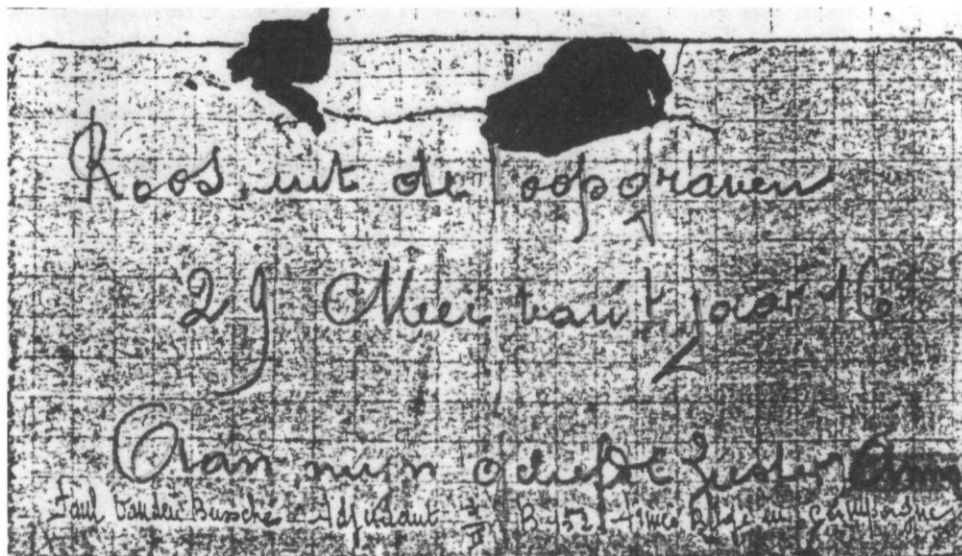 Roos uit de loopgraven
29 Mei van 't jaar 16
Aan mijn geliefde zuster Anna
Paul Vanden Bussche Adjudant B-152 Armée Belge en Campagne